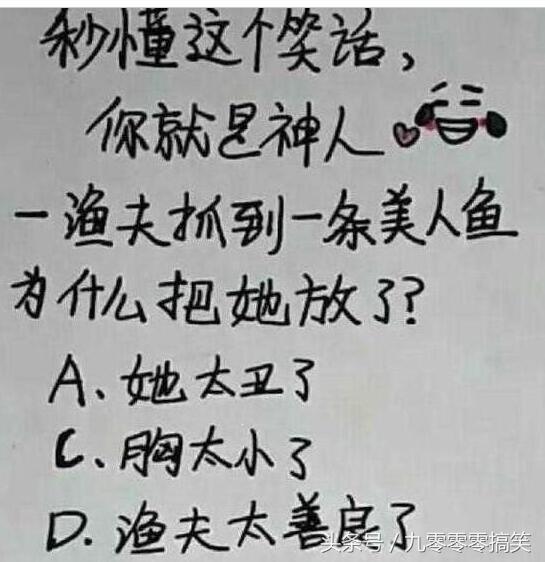 秒懂这个笑话,
你就是神人
一渔夫抓到一条美人鱼
为什么把她放了?
A、她太丑了
C、胸太小了
D. 渔夫太善良了
头条号/九零零零搞笑